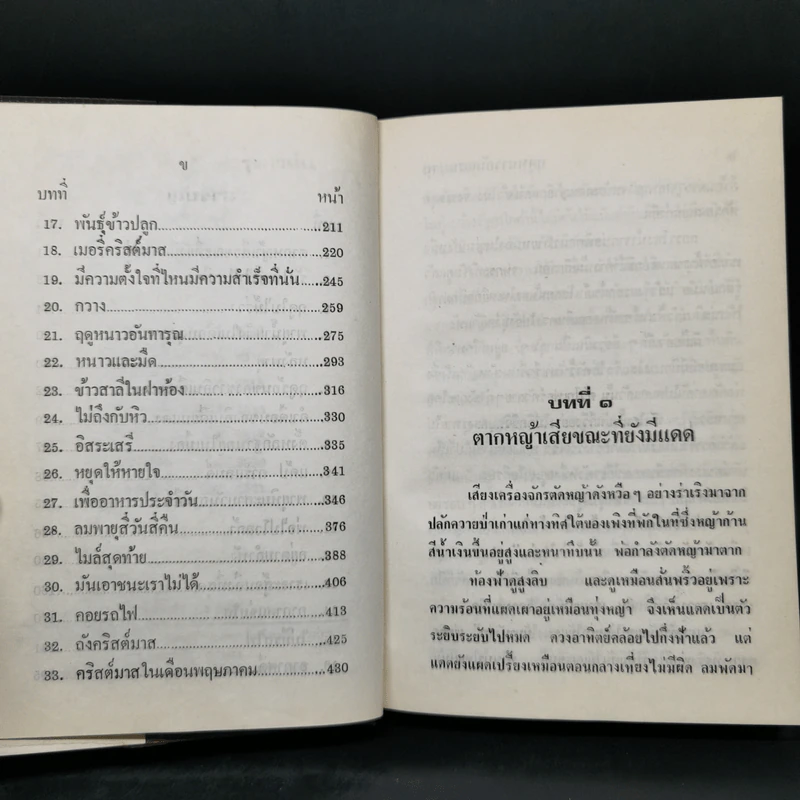 ข
บทที่ หน้า
17. พันธุ์ข้าวปลูก..............................211
18. เมอรี่คริสต์มาส..............................220
19. มีความตั้งใจที่ไหนมีความสำเร็จที่นั่น..........245
20. กวาง..............................259
21. ฤดูหนาวอันทารุณ..............................275
22. หนาวและมืด..............................293
23. ข้าวสาลีในฝาห้อง..............................316
24. ไม่ถึงกับหิว..............................330
25. อิสระเสรี..............................335
26. หยุดให้หายใจ..............................341
27. เพื่ออาหารประจำวัน..............................346
28. ลมพายุสี่วันสี่คืน..............................376
29. ไมล์สุดท้าย..............................388
30. มันเอาชนะเราไม่ได้..............................406
31. คอยรถไฟ..............................413
32. ถังคริสต์มาส..............................425
33. คริสต์มาสในเดือนพฤษภาคม....................430
บทที่ ๑
ตากหญ้าเสียขณะที่ยังมีแดด
เสียงเครื่องจักรตัดหญ้าดังหวือๆ อย่างร่าเริงมาจาก
ปลักควายป่าเก่าแก่ทางทิศใต้ของเพิงที่พักในที่ซึ่งหญ้าก้าน
สีน้ำเงินขึ้นอยู่สูงและหนาทึบนั้น พ่อกำลังตัดหญ้ามาตาก
ท้องฟ้าดูสูงลิบ และดูเหมือนสั่นพริ้วอยู่เพราะ
ความร้อนที่แผดเผาอยู่เหนือทุ่งหญ้า จึงเห็นแดดเป็นตัว
ระยิบระยับไปหมด ดวงอาทิตย์คล้อยไปกึ่งฟ้าแล้ว แต่
แดดยังแผดเปรี้ยงเหมือนตอนกลางเที่ยงไม่มีผิด ลมพัดมา